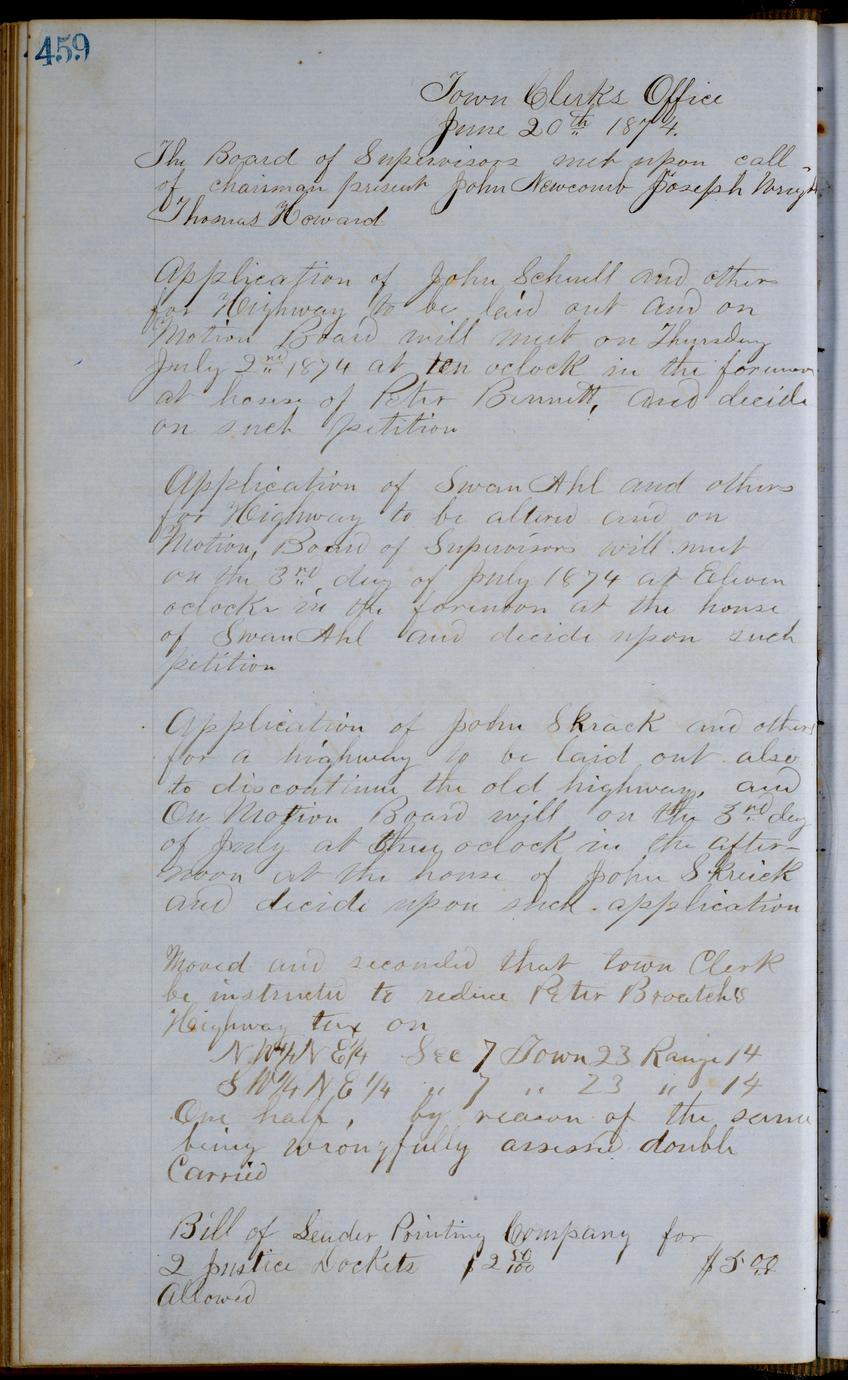 459
Town Clerks Office
June 20th 1874.
The Board of Supervisors met upon call
of chairman present John Newcomb Joseph Wright
Thomas Howard
Application of John Schnell and others
for Highway to be laid out and on
Motion Board will meet on Thursday
July 2nd 1874 at ten oclock in the forenoon
at house of Peter Bennett, and decide
on such petition
Application of Swan Ahl and others
for Highway to be altered and on
Motion, Board of Supervisors will meet
on the 3rd day of July 1874 at Eleven
oclock in the forenoon at the house
of Swan Ahl and decide upon such
petition
Application of John Skrack and others
for a highway to be laid out also
to discontinue the old highway, and
On Motion Board will on the 3rd day
of July at three oclock in the after-
noon at the house of John Skreick
and decide upon such application
Moved and seconded that town Clerk
be instructed to reduce Peter Broatchs
Highway tax on
N W 1/4 N E 1/4 Sec 7 Town 23 Range 14
S W 1/4 N E 1/4 " 7 " 23 " 14
One half, by reason of the same
being wrongfully assessed double
Carried
Bill of Leader Printing Company for
2 Justice Dockets $2 50/100 $5.00
Allowed